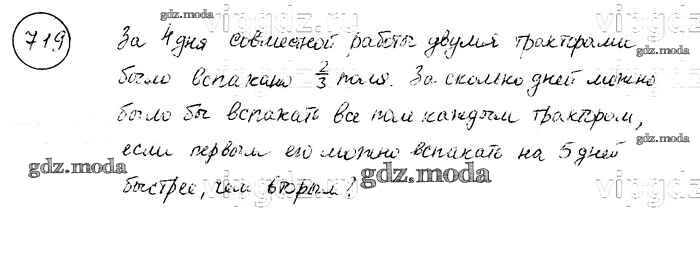 719 За 4 дня совместной работы двумя тракторами
было вспахано 2/3 поля. За сколько дней можно
было бы вспахать все поле каждым трактором,
если первым его можно вспахать на 5 дней
быстрее, чем вторым?
gdz.moda
gdz.moda
gdz.moda
gdz.moda
gdz.moda
gdz.moda